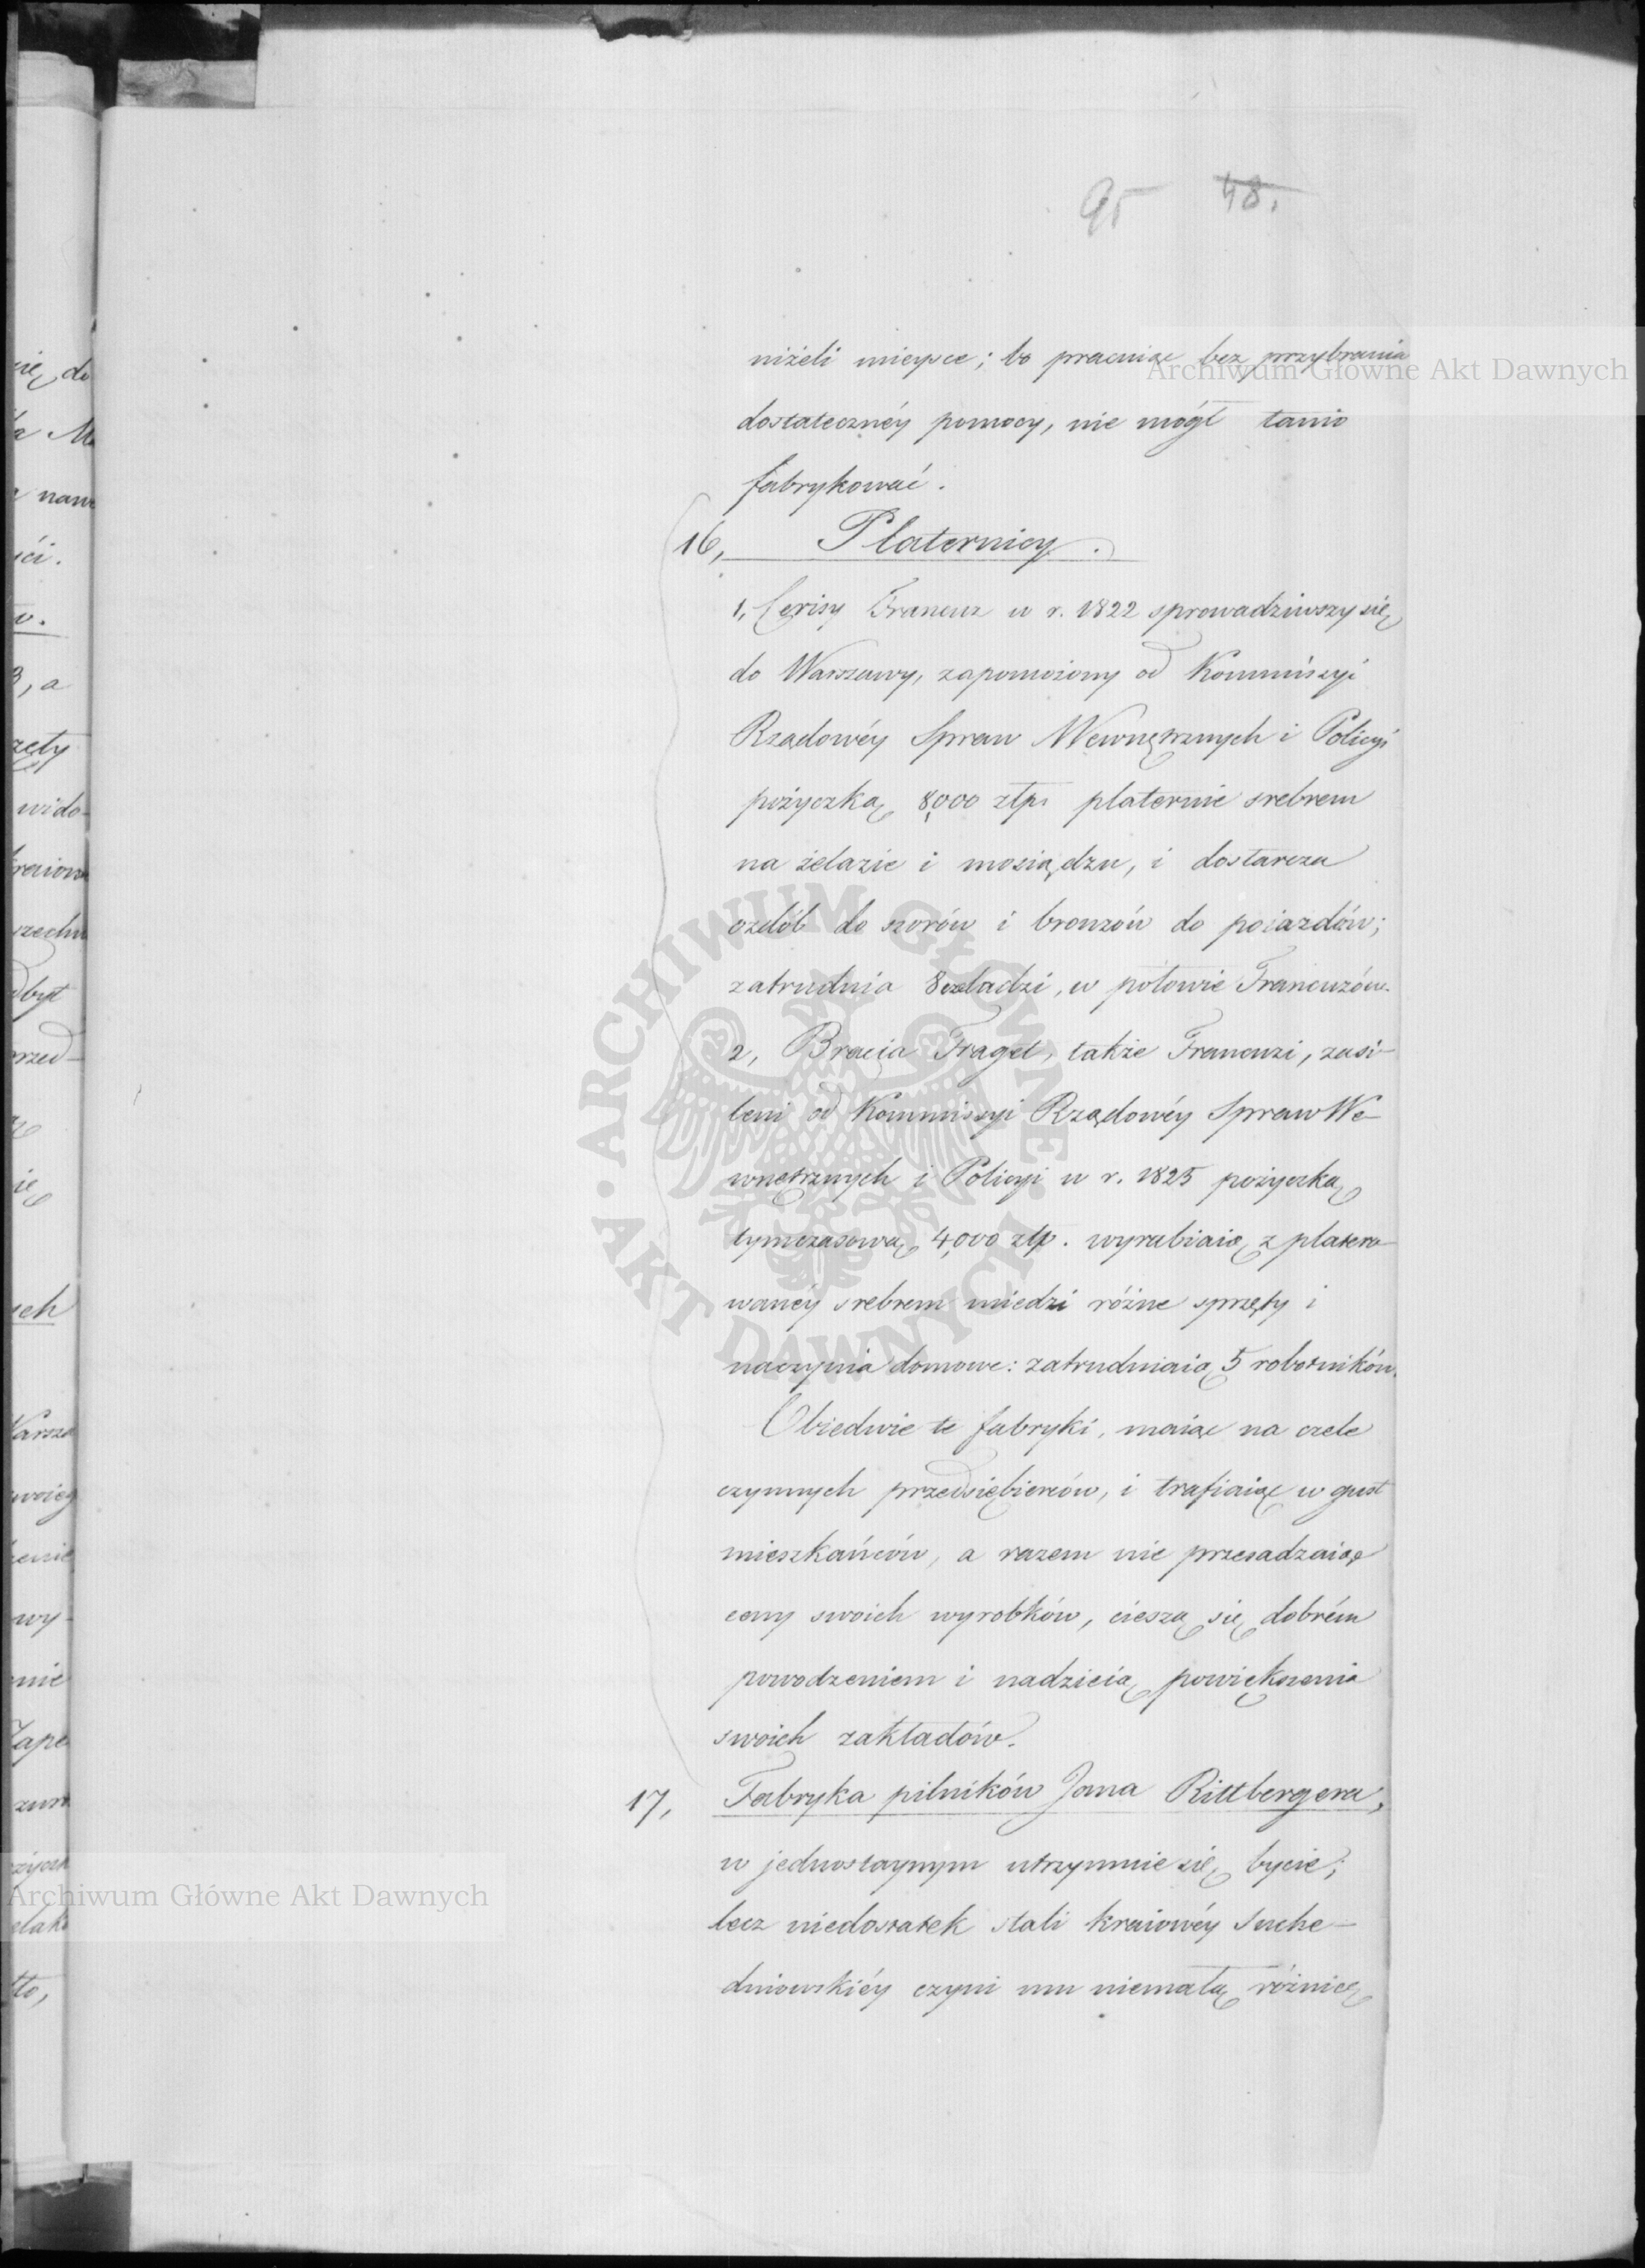 95 48.
niżeli mieysce; bo pracuiąc bez przybrania
dostatecznéy pomocy, nie mógł tanio
fabrykować.
16, Platernicy.
1, Cerisy Francuz w r. 1822 sprowadziwszy się
do Warszawy, zapomożony od Kommissyi
Rządowéy Spraw Wewnętrznych i Policyi
pożyczką 8,000 złp. plateruie srebrem
na żelazie i mosiądzu, i dostarcza
ozdób do szorów i bronzów do poiazdów;
zatrudnia 8 czeladzi, w połowie Francuzów.
2, Bracia Fraget, także Francuzi, zasi-
leni od Kommissyi Rządowéy Spraw We-
wnętrznych i Policyi w r. 1825 pożyczką
tymczasową 4,000 złp. wyrabiaią z platero-
wanéy srebrem miedzi różne sprzęty i
naczynia domowe: zatrudniaią 5 robotników.
Obiedwie te fabryki, maiąc na czele
czynnych przedsiębierców, i trafiaiąc w gust
mieszkańców, a razem nie przesadzaiąc
ceny swoich wyrobków, cieszą się dobrém
powodzeniem i nadzieią powiększenia
swoich zakładów.
17, Fabryka pilników Jana Rittbergera,
w jednostaynym utrzymuie się bycie;
lecz niedostatek stali kraiowéy Suche-
dniowskiéy czyni mu niemałą różnicę
Archiwum Główne Akt Dawnych
ARCHIWUM GŁÓWNE AKT DAWNYCH
Archiwum Główne Akt Dawnych